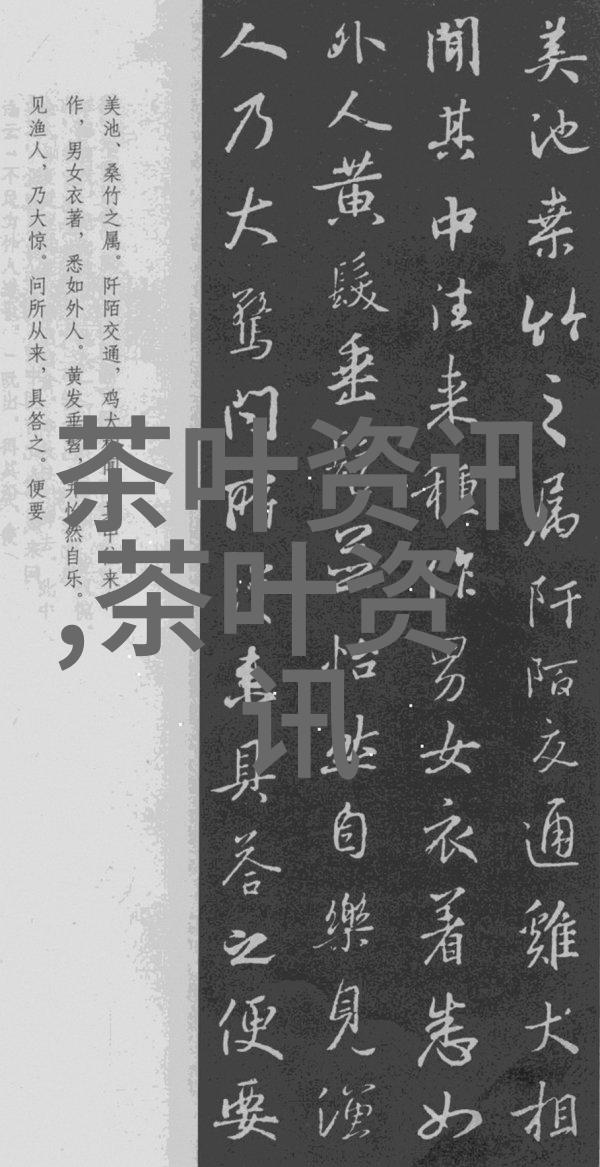 美池桒竹之属阡陌交通雞犬相
聞其中往来種作男女衣着悉如
外人黄髮垂髫並怡然自樂見漁
人乃大驚問所從来具答之便要
美池、桑竹之属。阡陌交通，鸡犬相闻。其中往来
作，男女衣著，悉如外人。黄发垂髫，并怡然自乐。
见渔人，乃大惊。问所从来，具答之。便要
茶叶资讯
,茶叶资
讯